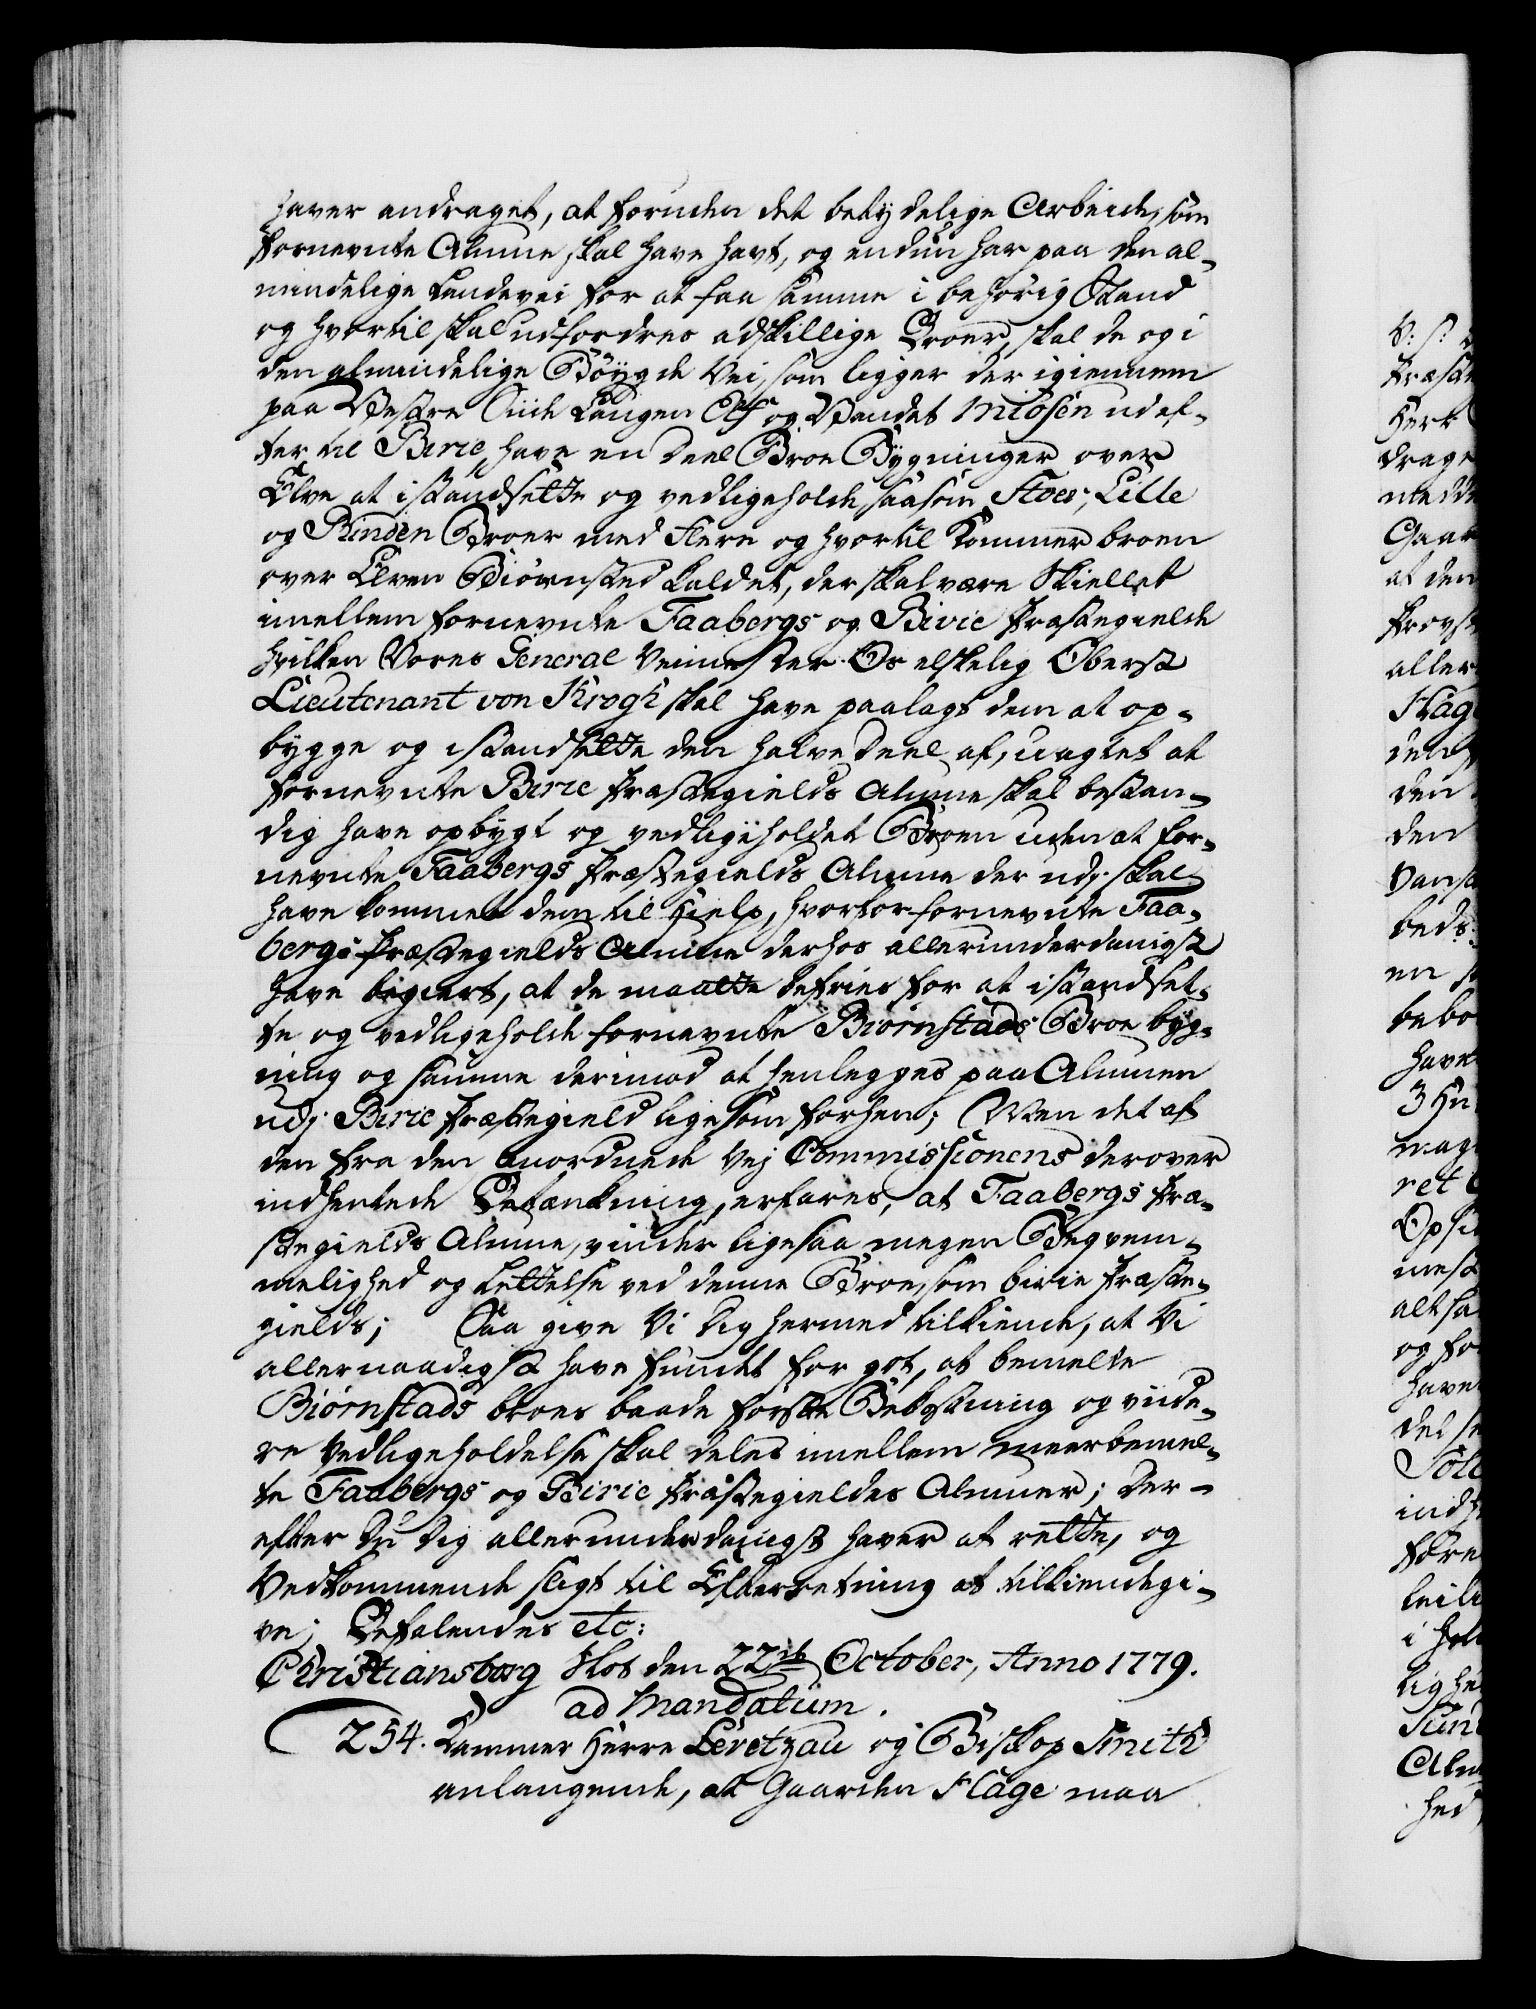 haver andraget, at foruden det betydelige Arbeide, som
fornevnte Almue skal have havt, og endnu har paa den al-
mindelige Landevei for at faa samme i behørig Stand
og hvortil skal udfordres adskillige Broer, skal de og i
den almindelige Böygde Vei, som ligger der igiennem
paa Vestre Siide Laugen Elf og Vandet Miösen udef-
ter til Birie, have en Deel Broe Bygninger over
Elve at istandsette og vedligeholde saasom Stoer, Lille
og Rinden Broer med flere og hvortil kommer broen
over Elven Biörnsted kaldet, der skal være Skiellet
imellem fornevnte Faabergs og Birie Præstegielde
hvilken Vores General Veimester Os elskelig Oberst
Lieutenant von Krogh skal have paalagt dem at op-
bygge og istandsette den halve Deel af, uagtet at
fornevnte Birie Præstegields Almue skal bestan-
dig have opbygt og vedligeholdet Broen uden at for-
nevnte Faabergs Præstegields Almue der udj skal
have kommet dem til Hielp, hvorfor fornevnte Faa-
bergs Præstegields Almue derhos allerunderdanigst
have begiert, at de maatte befries for at istandset-
te og vedligeholde fornevnte Biörnstads Broe byg-
ning og samme derimod at henlegges paa Almuen
udj Birie Præstegield ligesom forhen; Men det af
den fra den anordnede Vej Commissionens derover
indhentede Betænkning, erfares, at Faabergs Præ-
stegields Almue, vinder ligesaa megen Beqvem-
melighed og Lettelse ved denne Broe, som birie Præste-
gields; Saa give Vi Dig hermed tilkiende, at Vi
allernaadigst have fundet for got, at bemelte
Biörnstads broes baade förste Bekostning og viide-
re Vedligeholdelse skal deles imellem meerbemel-
te Faabergs og Birie Præstegieldes Almuer; Der-
efter Du Dig allerunderdanigst haver at rette, og
Vedkommende sligt til Efterretning at tilkiendegi-
ve; Befalendes etc:
Christiansborg Slot den 22de October, Anno 1779.
ad Mandatum.
254. Kammer Herre Levetzau og Biskop Smith
anlangende, at Gaarden Hage maa